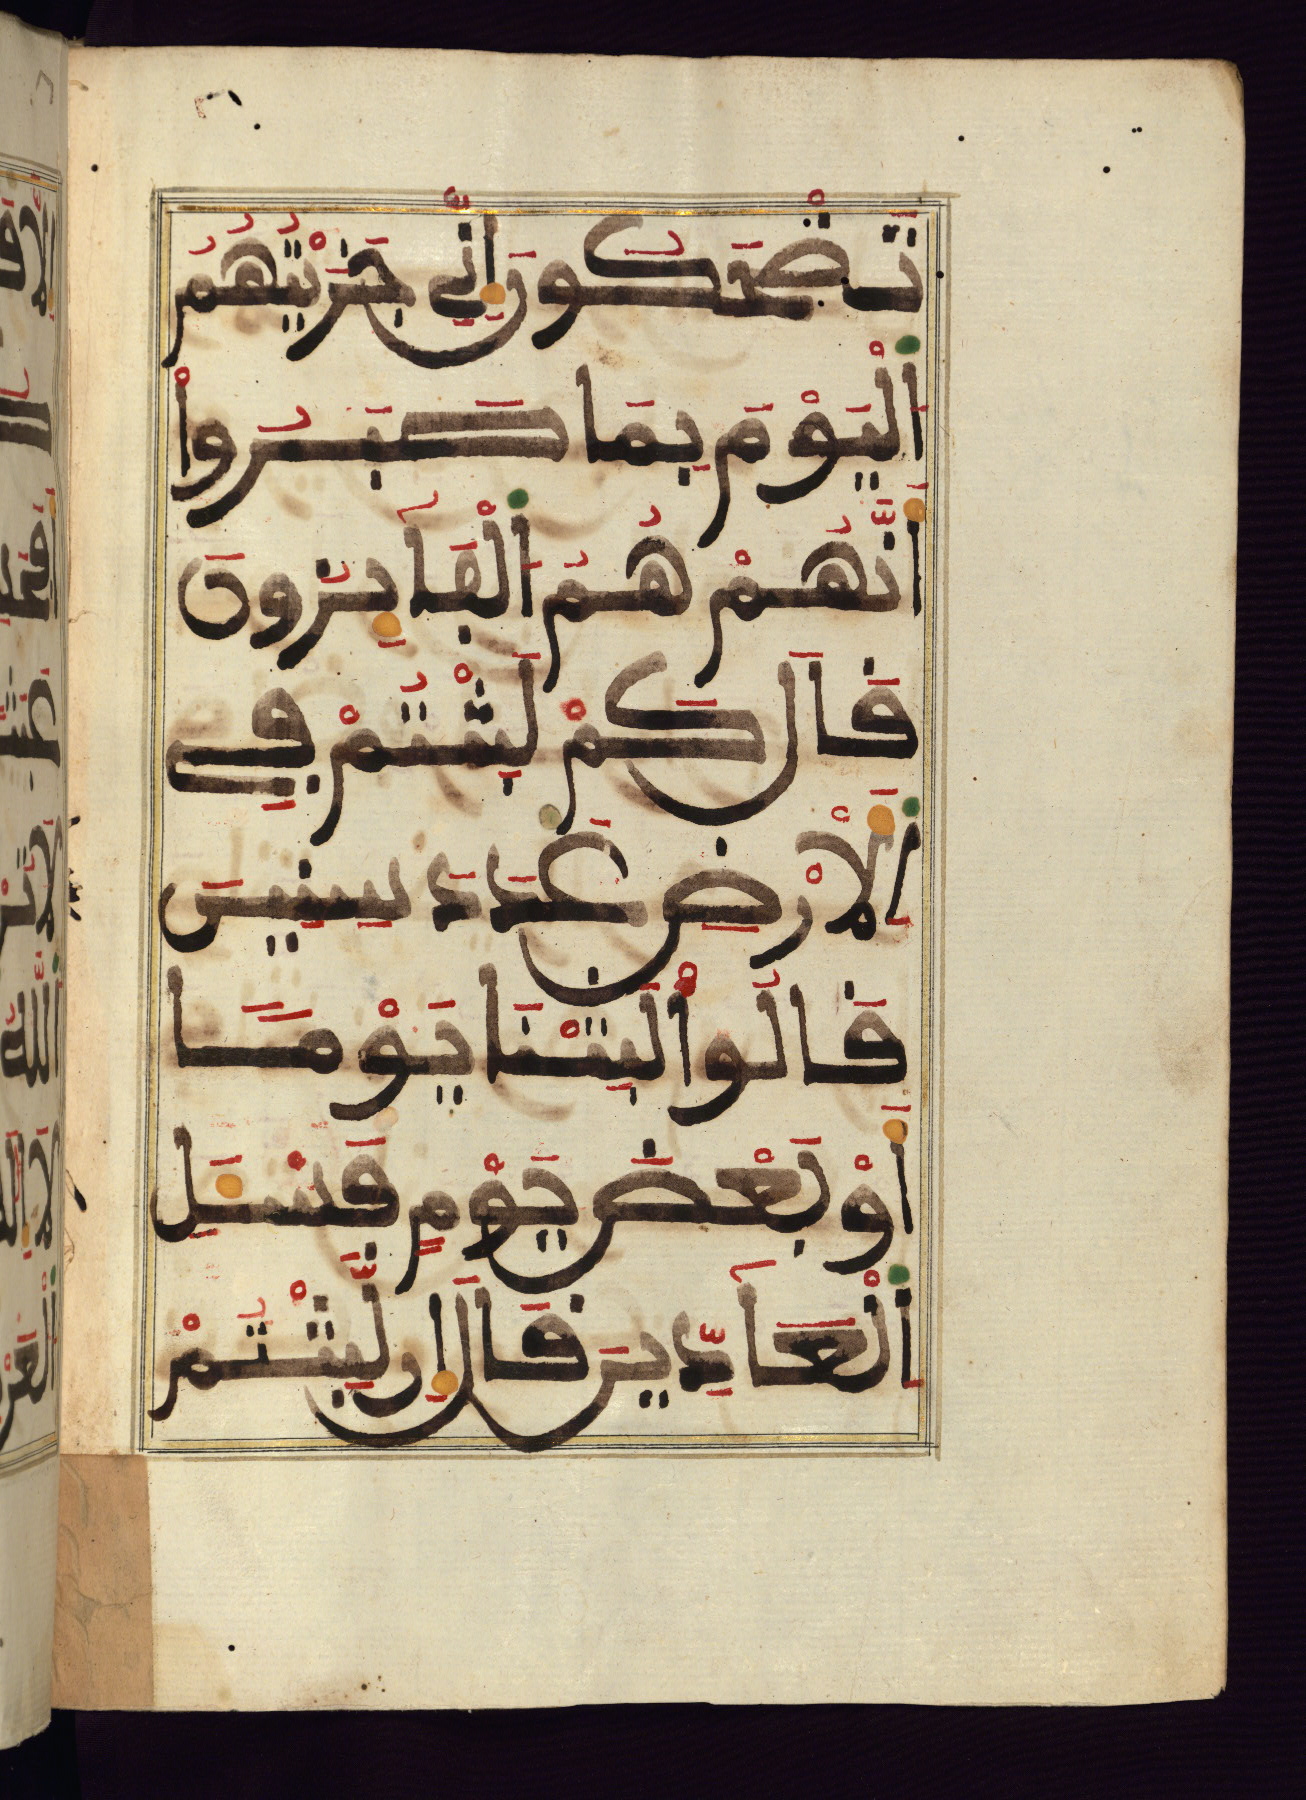 تَضْحَكُونَ إِنِّي جَزَيْتُهُمُ
اُلْيَوْمَ بِمَا صَبَرُواْ
أَنَّهُمْ هُمُ اُلْفَآئِزُونَ
قَالَ كَمْ لَبِثْتُمْ فِي
اِلْأَرْضِ عَدَدَ سِنِينَ
قَالُواْ لَبِثْنَا يَوْمًا
أَوْ بَعْضَ يَوْمٍ فَسْـَٔلِ
اِلْعَآدِّينَ قَالَ إِن لَّبِثْتُمْ